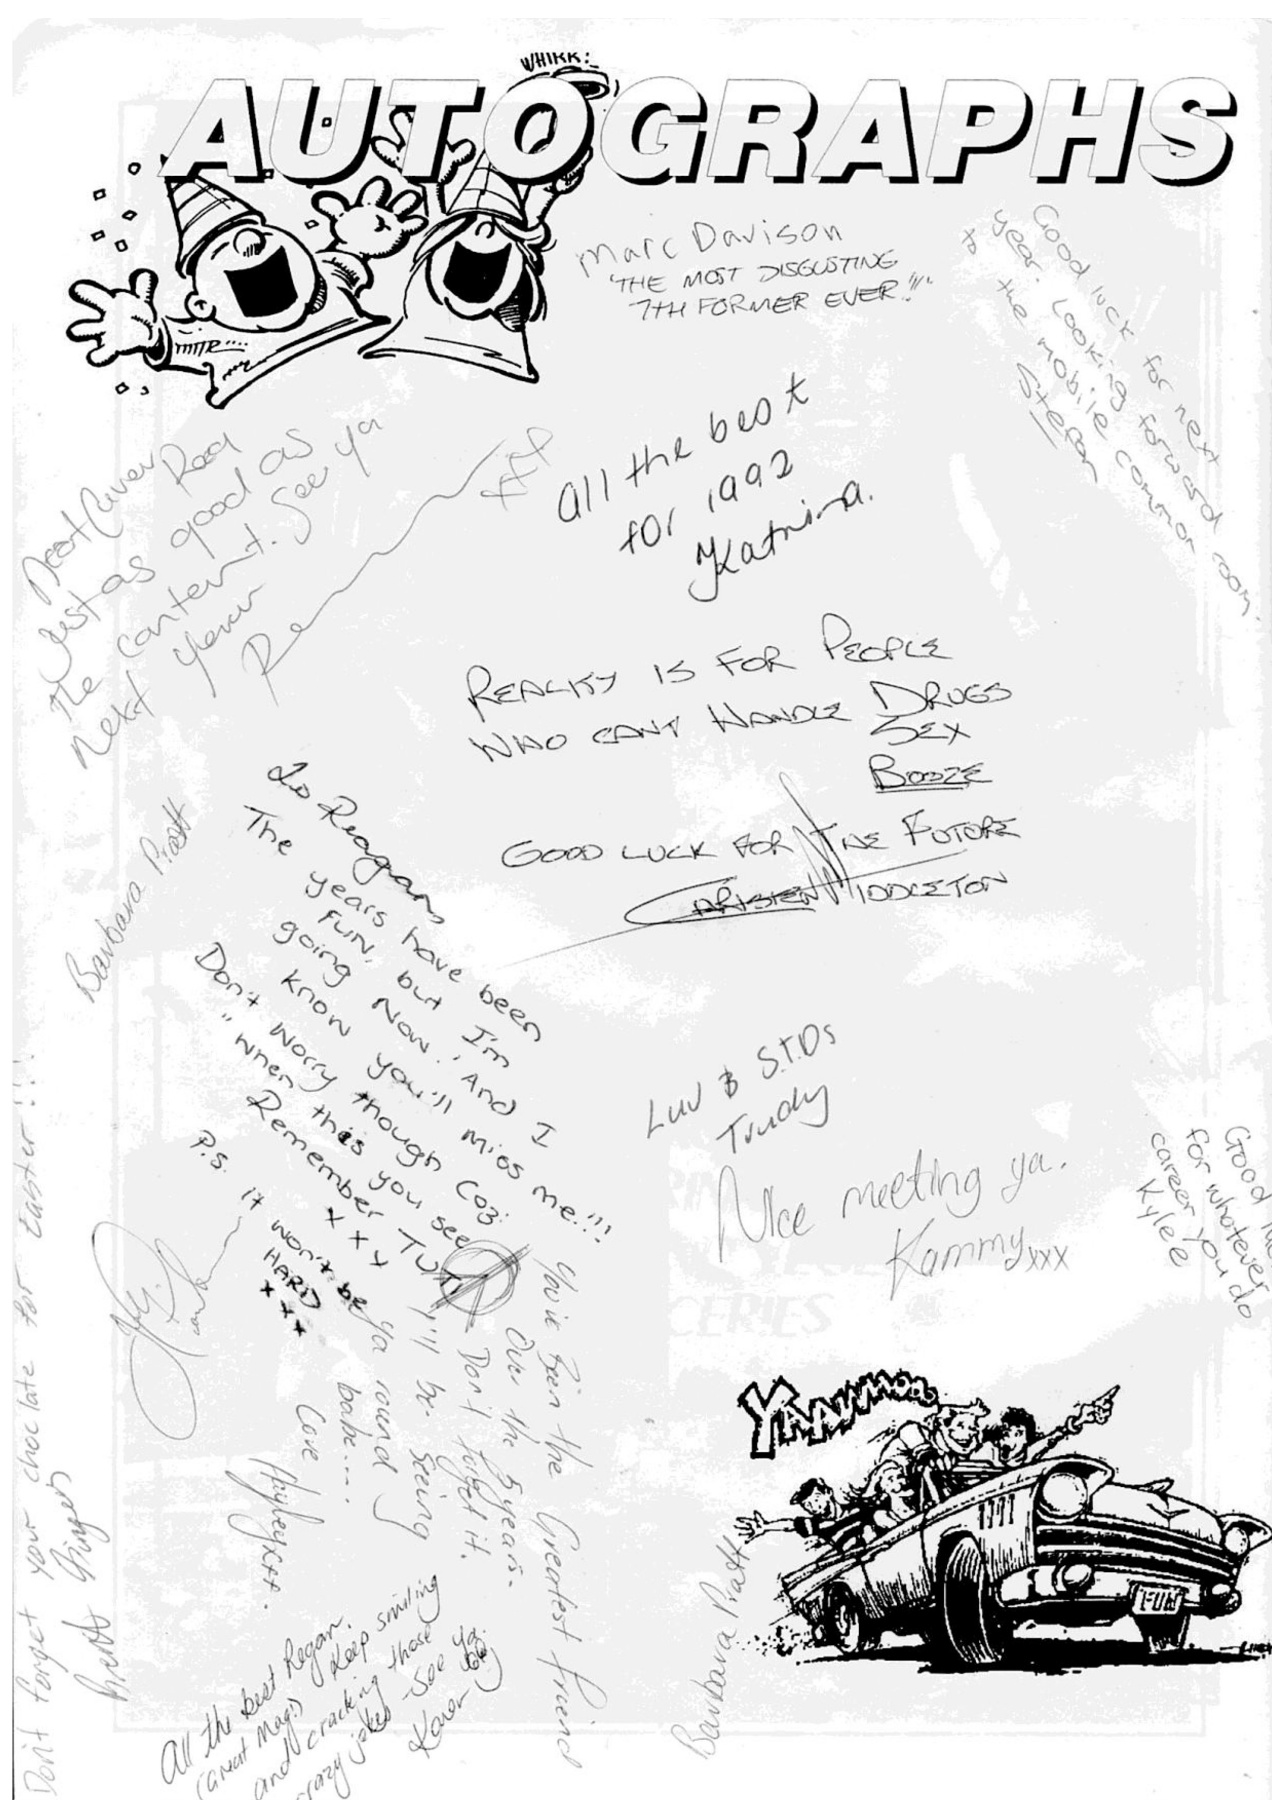 WHIRR!
AUTOGRAPHS
Marc Davison
'THE MOST DISGUSTING
7TH FORMER EVER!!!'
Good luck for next
year. Looking forward
to the mobile common room.
Stefan
All the best
for 1992
Katrina.
Great Cover Reag
Just as good as
the content. See ya
next year
xxx
REALITY IS FOR PEOPLE
WHO CANT HANDLE DRUGS
SEX
BOOZE
GOOD LUCK FOR THE FUTURE
CARISTEN MIDDLETON
Barbara Pratt
To Reagan,
The years have been
fun, but I'm
going Now! And I
know you'll miss me!!!
Don't worry though coz:
"When this you see
Remember TUT."
x x x
P.S. it won't be
HARD
x x x
Luv & S.T.Ds
Trudy
Nice meeting ya.
Kammy xxx
Good
for whatever
career you do
Kylee
You've been the Greatest friend
Over the 5 years.
Don't forget it.
I'll be seeing
ya round
babe....
Love
Don't forget your choclate for Easter!!!
Ginger
All the best Regan.
Great Mag. Keep smiling
and cracking those
crazy jokes. See ya
Karen
Barbara Pratt
YAAAHHHOOO
FUN
CERIES